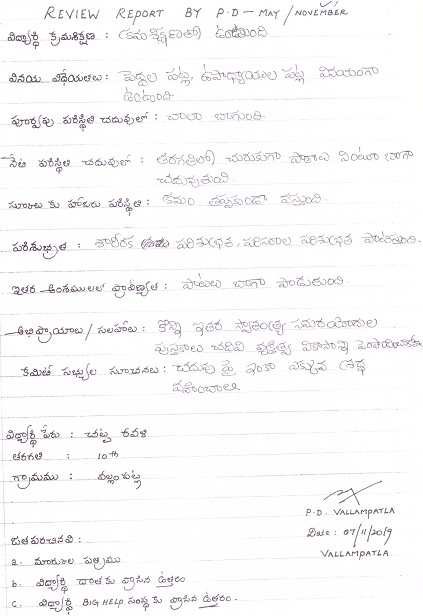 REVIEW REPORT BY P.D - MAY / NOVEMBER
విద్యార్థి క్రమశిక్షణ : క్రమశిక్షణతో ఉంటుంది
వినయ విధేయతలు : పెద్దల పట్ల, ఉపాధ్యాయుల పట్ల వినయంగా
ఉంటుంది
పూర్వపు పరిస్థితి చదువులో : చాలా బాగుంది.
నేటి పరిస్థితి చదువులో : తరగతిలో చురుకుగా పాఠాలు వింటూ బాగా
చదువుతుంది.
స్కూలు కు హాజరు పరిస్థితి : క్రమం తప్పకుండా వస్తుంది.
పరిశుభ్రత : శారీరక పరిశుభ్రత, పరిసరాల పరిశుభ్రత పాటిస్తుంది.
ఇతర అంశములలో ప్రావీణ్యత : పాటలు బాగా పాడుతుంది.
అభిప్రాయాలు / సలహాలు : కొన్ని ఇతర స్వాతంత్ర్య సమరయోధుల
పుస్తకాలు చదివి వ్యక్తిత్వ వికాసాన్ని
కమిటీ సభ్యుల సూచనలు : చదువు పై ఇంకా ఎక్కువ శ్రద్ధ
వహించాలి
విద్యార్థి పేరు : చట్ల రవళి
తరగతి : 10th
గ్రామము : వల్లంపట్ల
P.D. VALLAMPATLA
Date: 07/11/2019
VALLAMPATLA
జతపరచినవి :
a. మార్కుల పత్రము
b. విద్యార్థి దాతకు వ్రాసిన ఉత్తరం
c. విద్యార్థి BIG HELP సంస్థ కు వ్రాసిన ఉత్తరం.